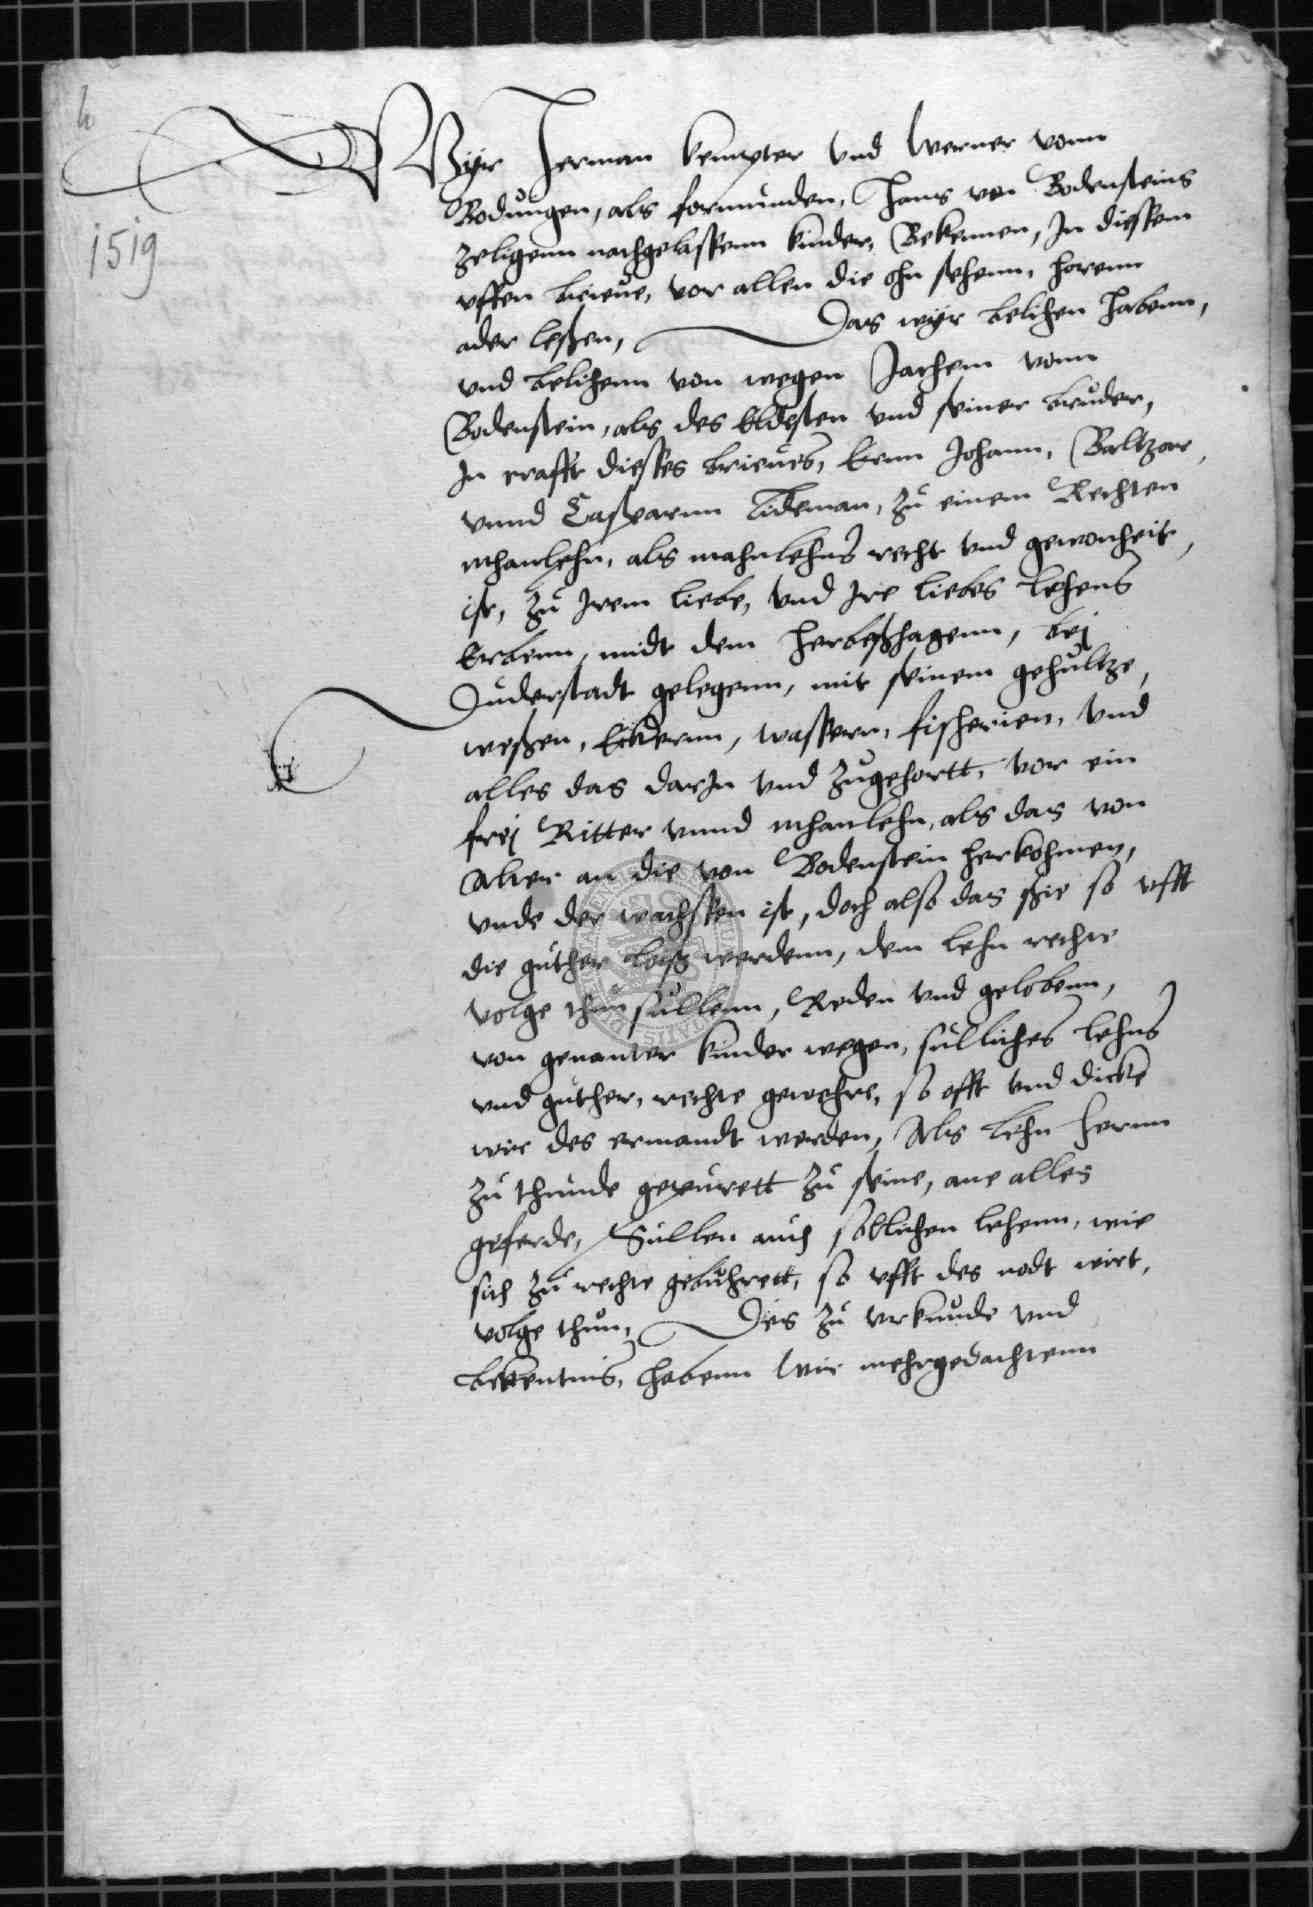 1519
Wyr Herman kempter vnd Werner vonn
Bodungen, als formunden, Hans von Bodensteins
zeligenn nachgelassenn kinder, Bekennen, In diessem
offen brieue, vor allen die ohn sehenn, horenn
ader lessen, Das wyr belihen habenn,
vnd belihenn von wegen Jachem vonn
Bodenstein, als des Eldesten vnd seiner bruder,
In crafft diesses brieues, Ernn Johann, Baltzar,
vnnd Casparnn Tideman, zu einem Rechten
mhanlehn, als mahnlehns recht vnd gewonheit,
ist, zu Irem liebe, vnd Ire liebes lehens
Erbenn, midt dem Herbeßhagenn, bej
Duderstadt gelegenn, mit seinem gehultze,
weßen, Eckernn, wassern, fischerien, vnd
alles das darIn vnd zugehortt, vor ein
frej Ritter vnnd mhanlehn, als das von
Alter an die von Bodenstein herkohmen,
vnde der wachssen ist, doch also das ssie so offt
die guther loiß werdenn, dem lehn rechte
volge thun sullenn, Reden vnd gelobenn,
von genanter kinder wegen, sulliches lehns
vnd guther, rechte gewehre, so offt vnd dicke
wir des ermandt werden, Als lehn hernn
zu thunde gepurett zu seine, ane alles
geferde, Sullen auch sollichen lehenn, wie
sich zu rechte gebuhrett, so offt des nodt wirt,
volge thun, Des zu vrkunde vnd
bekentnis, habenn Wir mehrgedachtenn